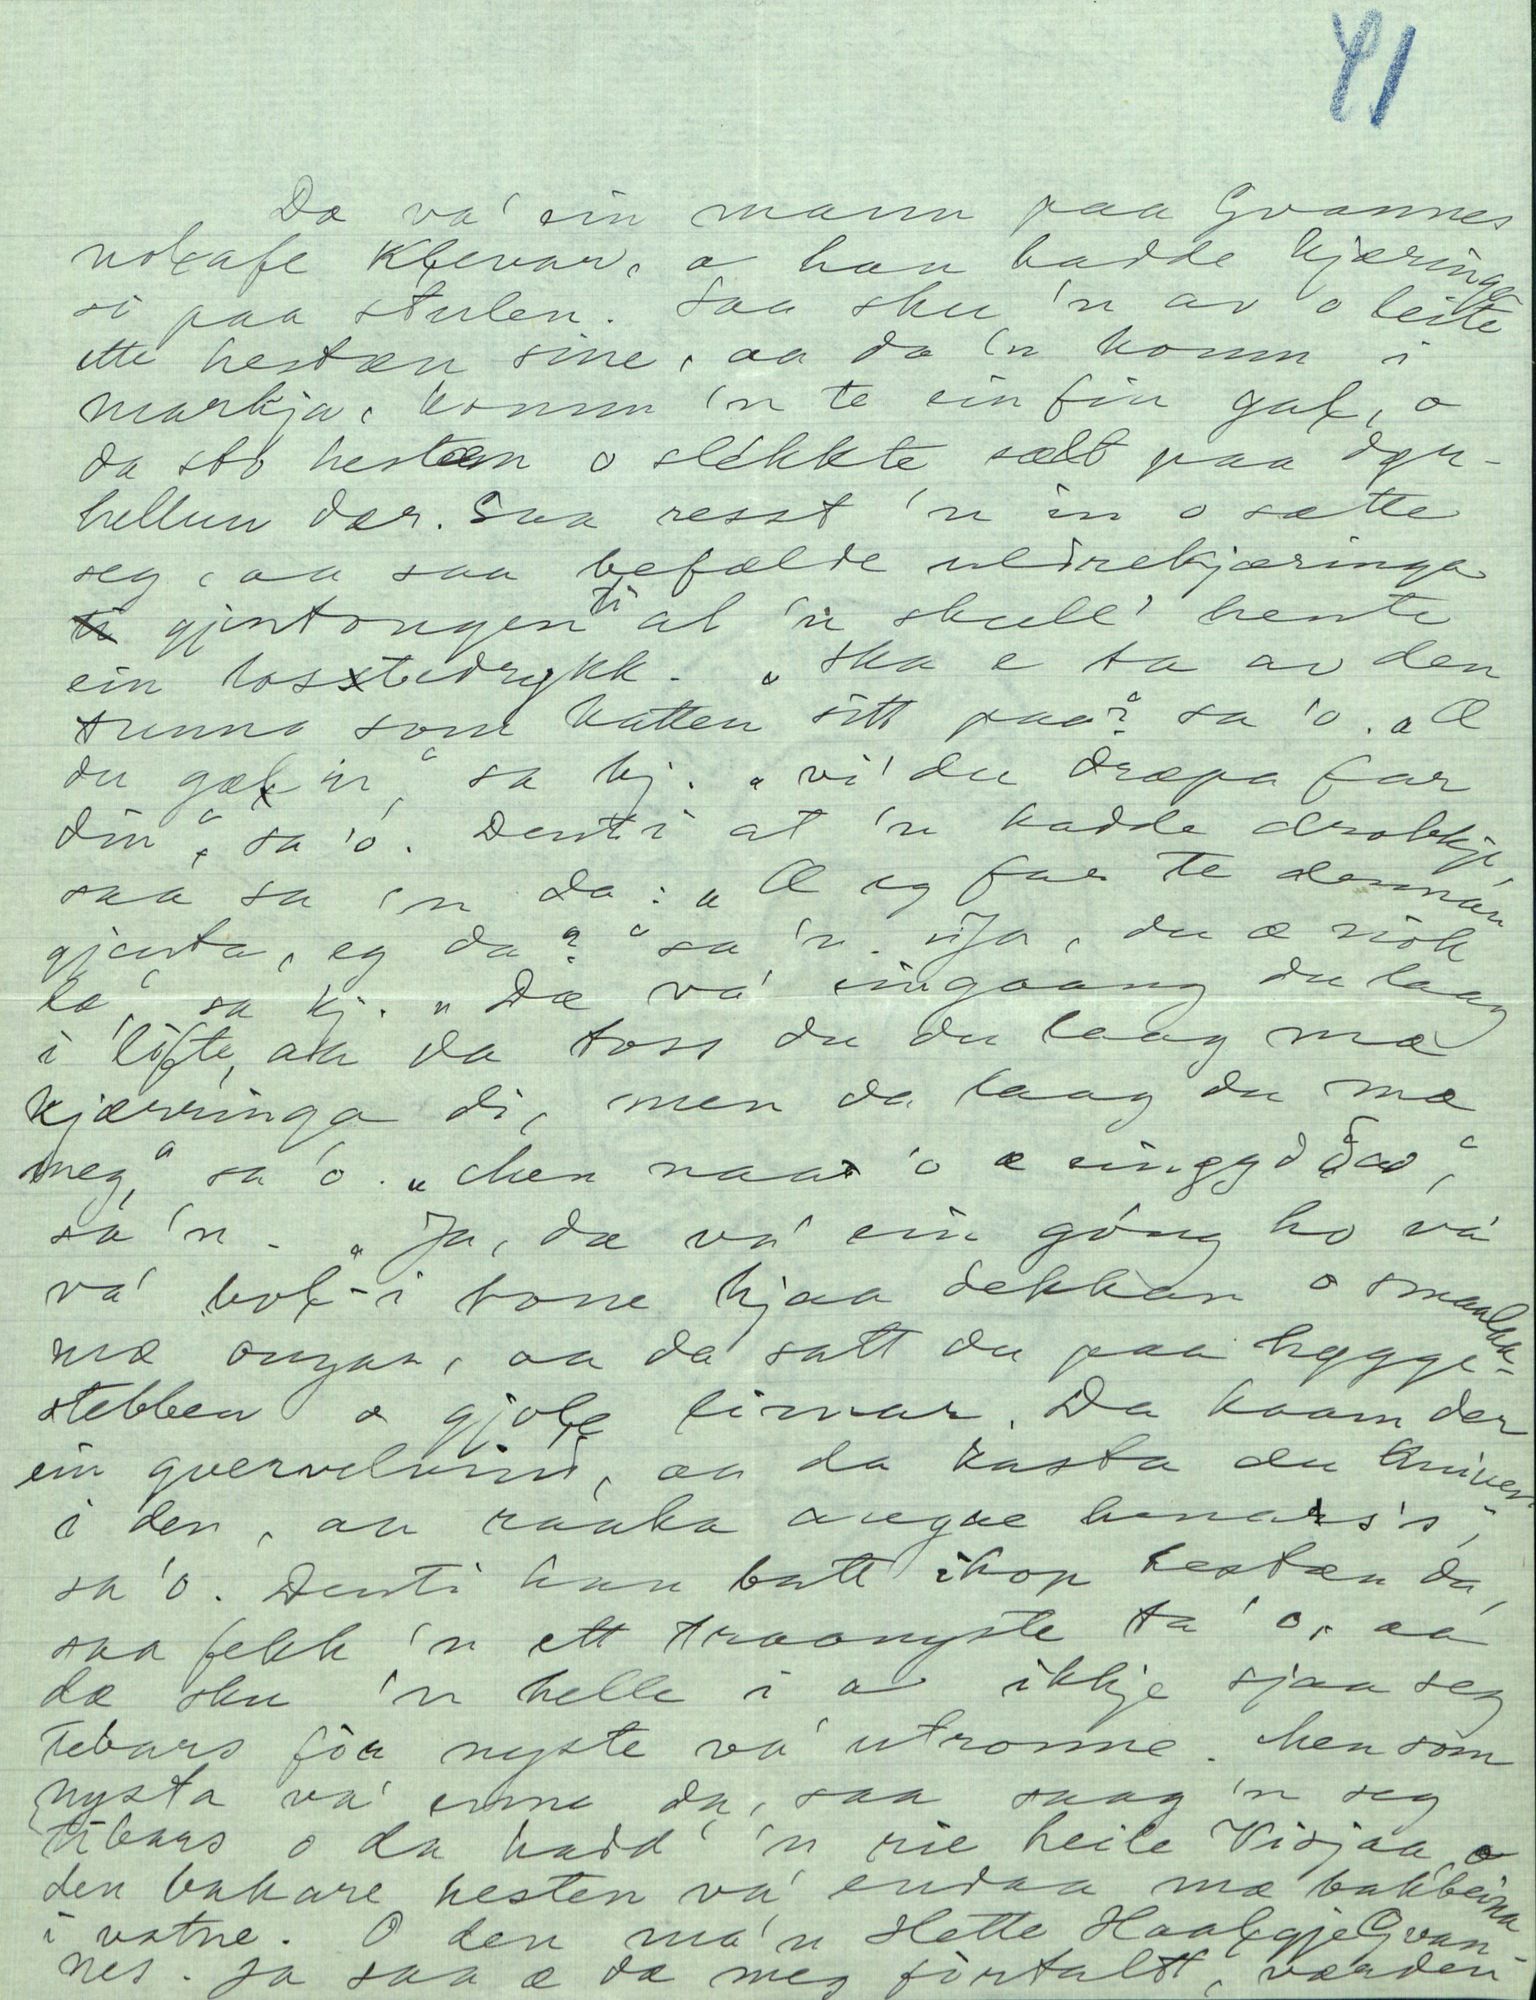 41
Dæ va' ein mann paa Gvannes
nolafe Klevar, o han hadde kjæringa
si paa stulen. Saa sku 'n av o leite
ette hestæn sine, aa da 'n komm i
markja, komm 'n te ein fin gal, o
da sto hestæn o slikkte salt paa dør-
hellun dær. Saa resst 'n in o sætte
seg, aa saa befælde uldrekjæringa
gjentongen ti at 'n skull' hente
ein tosstedrykk. „Ska e ta av den
tunna som katten sitt paa?" sa 'o. „Æ
du gal'n", sa kj. „vi' du dræpa far
din", sa 'o. Denti at 'n hadde drokkje
saa sa 'n da: „Æ eg far te denna
gjenta, eg da?" sa 'n. „Ja, du æ nok
de", sa kj. „Dæ va' eingaang du laag
i løfte, aa da toss du du laag mæ
kjærringa di, men da laag du mæ
meg," sa 'o. „Men naar 'o æ eingygd da",
sa 'n. „Ja, dæ va' ein gong ho va'
va' bol-i tone hjaa dekkan o smaakka
mæ ongan, aa da satt du paa hogge-
stabben o gjole limar. Da kaam der
ein qvervelvind, aa da kasta du kniven
i den, aa raaka augue henars's",
sa 'o. Denti han batt ihop hestæn da,
saa fekk 'n ett traanyste ta 'o, aa
dæ sku 'n helle i o ikkje sjaa seg
tebars før nyste va' utronne. Men som
nysta va' enna da, saa saag 'n seg
tibars o da hadd 'n rie heile Visjaa o
den bakare hesten va' endaa mæ bakbeina
i vatne. O den ma'n hette Haalgje Gvan-
nes. Ja saa æ dæ meg fortalt, værden